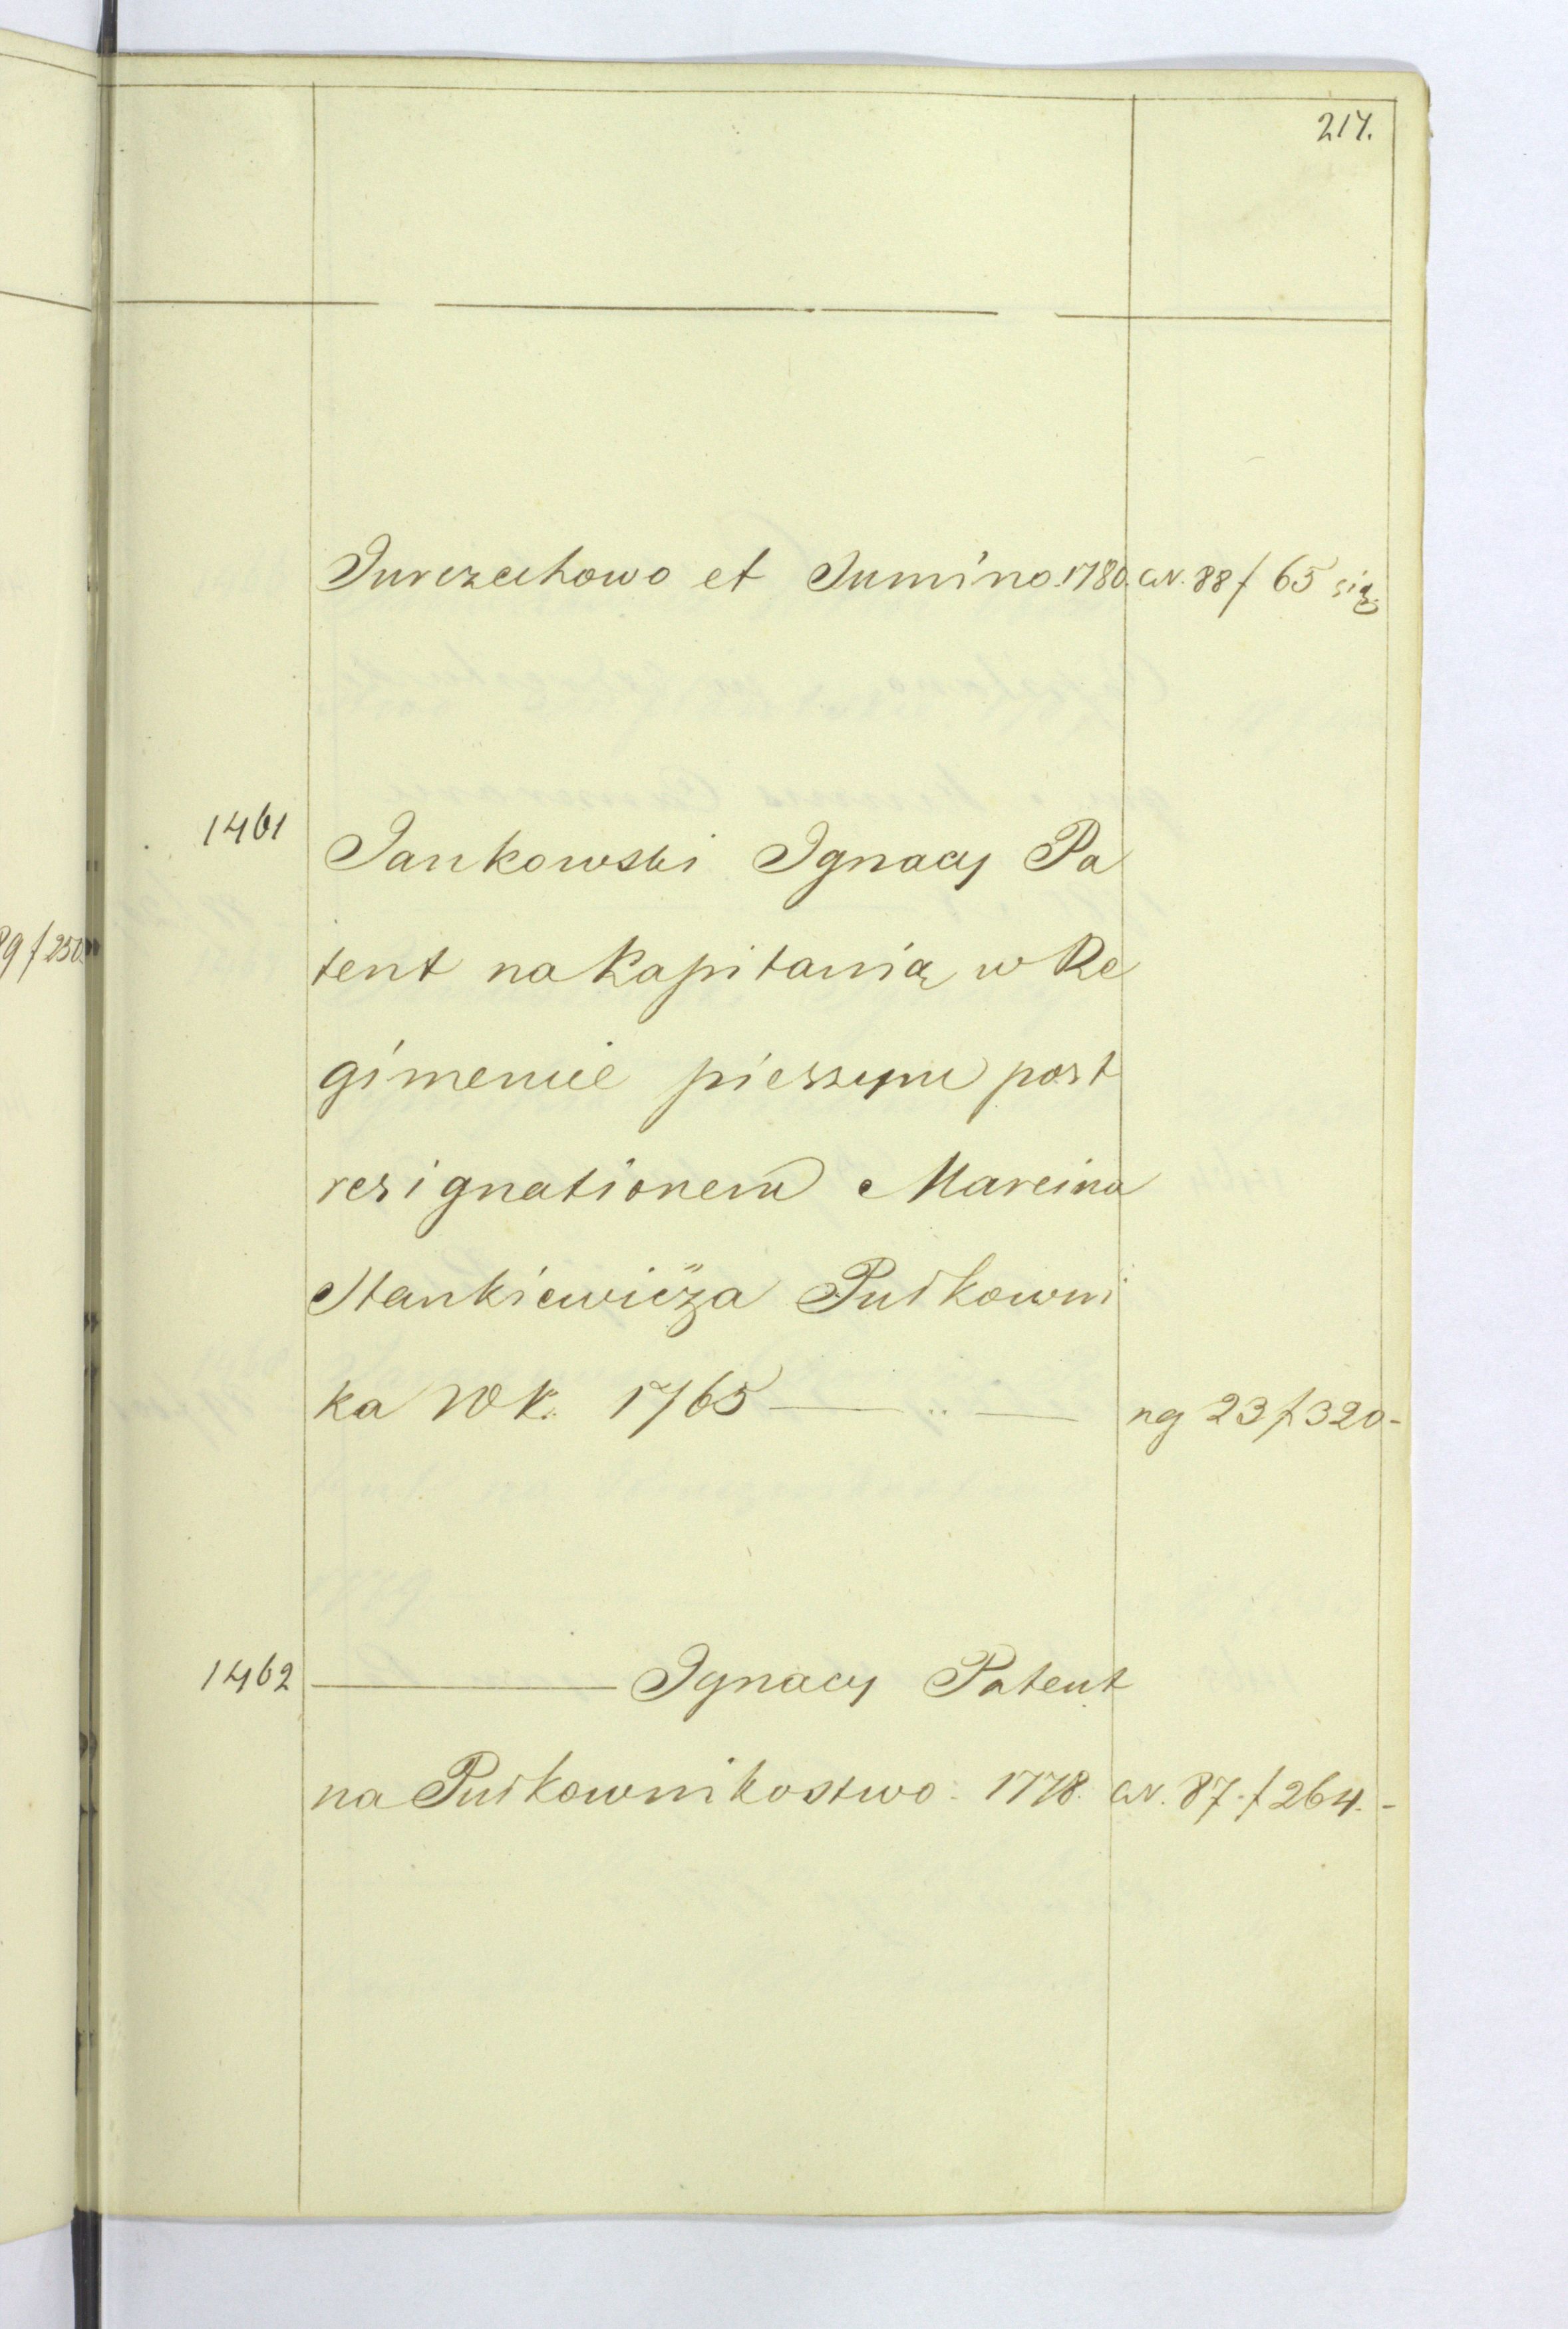 217.
Jurczechowo et Jumino. 1780. CN. 88 f 65 sig.
1461 Jankowski Ignacy Pa
89 f 250.
tent na Kapitanią w Re
gimencie pieszym post
resignationem Marcina
Stankiewicza Pułkowni
ka W K. 1765 — .. — ng 23 f 320 -
1462 — Ignacy Patent
na Pułkownikostwo. 1778. CN. 87. f 264. -